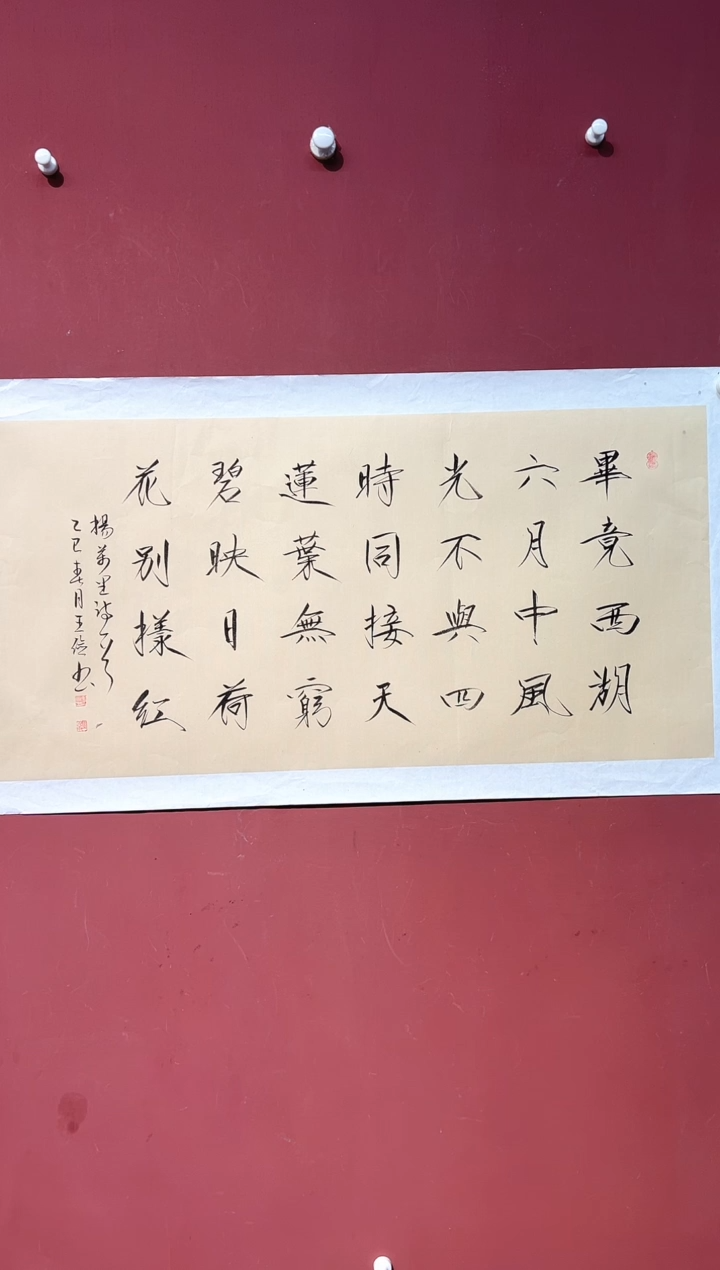 畢竟西湖
六月中風
光不與四
時同接天
蓮葉無窮
碧映日荷
花别樣紅
楊萬里詩一首
乙巳春月王信书